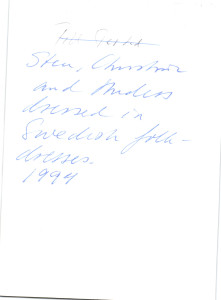 Sten, Christina
and Anders
dressed in
Swedish folk-
dresses.
1994